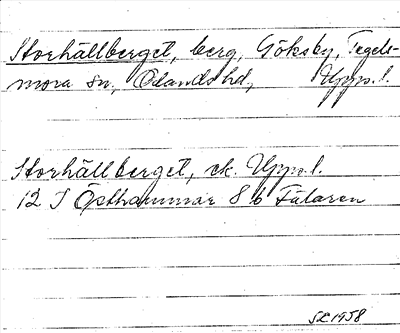 Storhällberget, berg, Göksby, Tegels-
mora sn, Ölands hd, Upps.l.
Storhällberget, ek. Upps.l.
12 I Östhammar 8 b Fälaren
SL 1958